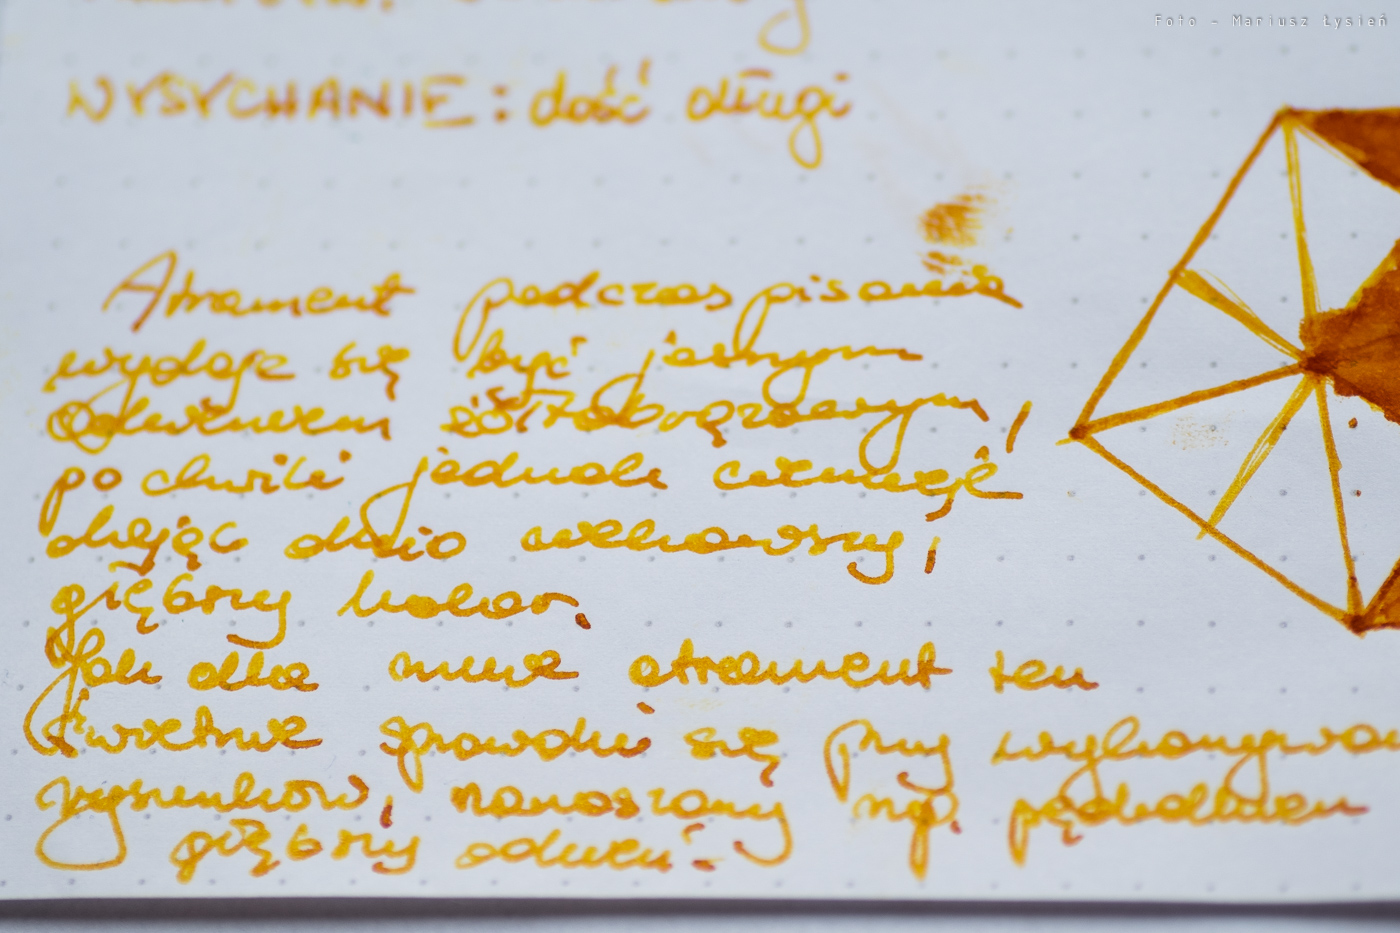 Foto - Mariusz Łysień
WYSYCHANIE: dość długi
Atrament podczas pisania
wydaje się być jasnym
odcieniem żółtobrązowym,
po chwili jednak ciemnieje
dając dużo ciekawszy,
głębszy kolor.
Jak dla mnie atrament ten
świetnie sprawdzi się przy
rysunków, nanoszony np. pędzelkiem
głębszy odcień.